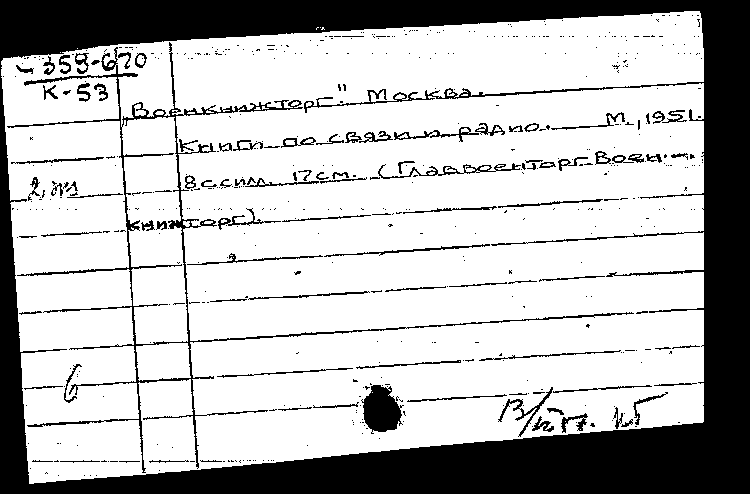 359-670
К-53
„Военкнижторг". Москва.
Книги по связи и радио. М., 1951.
8 с. 17см. (Главвоенторг. Воен-
книжторг).
2 экз
6
13/